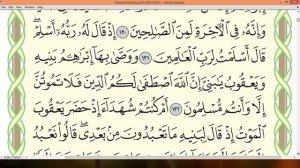 وَإِنَّهُۥ فِى ٱلْءَاخِرَةِ لَمِنَ ٱلصَّٰلِحِينَ ١٣٠ إِذْ قَالَ لَهُۥ رَبُّهُۥٓ أَسْلِمْ
قَالَ أَسْلَمْتُ لِرَبِّ ٱلْعَٰلَمِينَ ١٣١ وَوَصَّىٰ بِهَآ إِبْرَٰهِۦمُ بَنِيهِ
وَيَعْقُوبُ يَٰبَنِىَّ إِنَّ ٱللَّهَ ٱصْطَفَىٰ لَكُمُ ٱلدِّينَ فَلَا تَمُوتُنَّ
إِلَّا وَأَنتُم مُّسْلِمُونَ ١٣٢ أَمْ كُنتُمْ شُهَدَآءَ إِذْ حَضَرَ يَعْقُوبَ
ٱلْمَوْتُ إِذْ قَالَ لِبَنِيهِ مَا تَعْبُدُونَ مِنۢ بَعْدِى قَالُوا۟ نَعْبُدُ